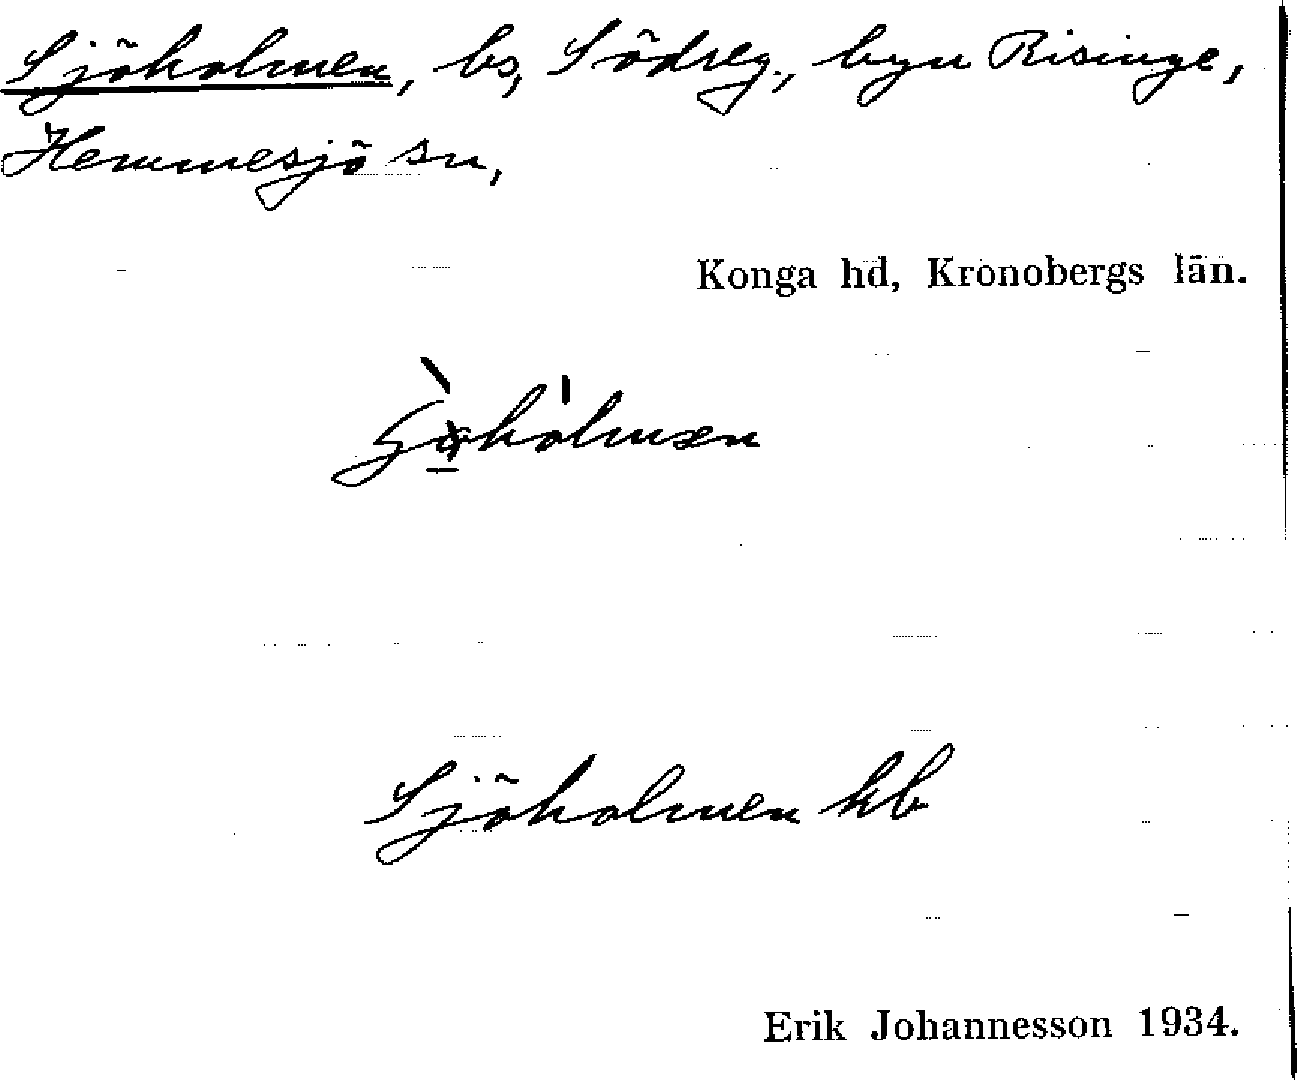 Sjöholmen, bs, Södreg., byn Risinge,
Hemmesjö sn,
Konga hd, Kronobergs län.
Sjöholmen hb
Erik Johannesson 1934.